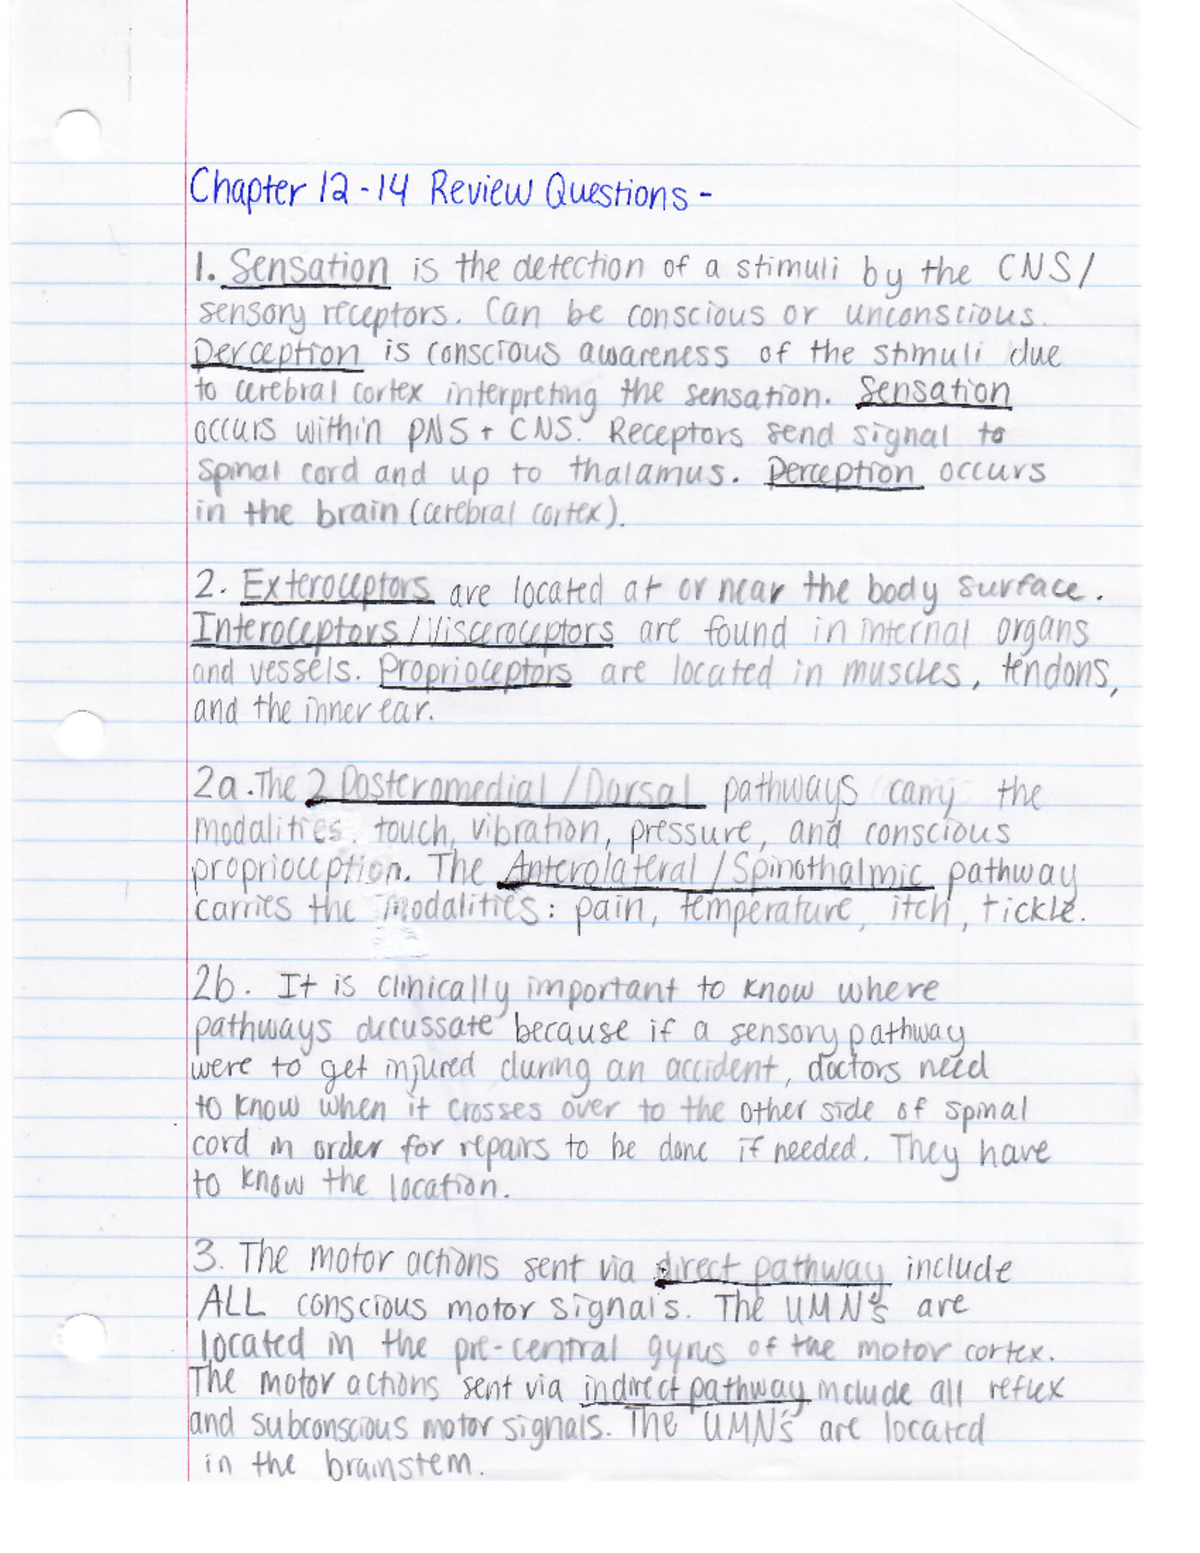 Chapter 12-14 Review Questions -
1. Sensation is the detection of a stimuli by the CNS/
sensory receptors. Can be conscious or unconscious.
Perception is conscious awareness of the stimuli due
to cerebral cortex interpreting the sensation. Sensation
occurs within PNS + CNS. Receptors send signal to
spinal cord and up to thalamus. Perception occurs
in the brain (cerebral cortex).
2. Exteroceptors are located at or near the body surface.
Interoceptors/Visceroceptors are found in internal organs
and vessels. Proprioceptors are located in muscles, tendons,
and the inner ear.
2a. The 2 Posteromedial/Dorsal pathways carry the
modalities: touch, vibration, pressure, and conscious
proprioception. The Anterolateral/Spinothalmic pathway
carries the modalities: pain, temperature, itch, tickle.
2b. It is clinically important to know where
pathways decussate because if a sensory pathway
were to get injured during an accident, doctors need
to know when it crosses over to the other side of spinal
cord in order for repairs to be done if needed. They have
to know the location.
3. The motor actions sent via direct pathway include
ALL conscious motor signals. The UMN's are
located in the pre-central gyrus of the motor cortex.
The motor actions sent via indirect pathway include all reflex
and subconscious motor signals. The UMN's are located
in the brainstem.